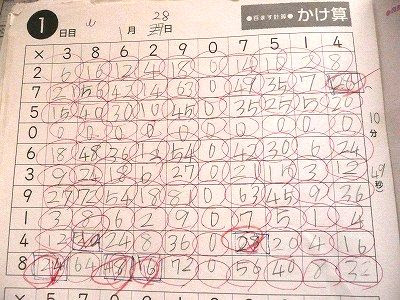 1 日目 月 28 日 ●百ます計算● かけ算
× 3 8 6 2 9 0 7 5 1 4
2 6 16 12 4 18 0 14 10 2 8
7 21 56 42 14 63 0 49 35 7
5 15 40 30 10 45 0 35 25 5 20
0 0 0 0 0 0 0 0 0 0 0
6 18 48 36 12 54 0 42 30 6 24
3 9 24 18 6 27 0 21 15 3 12
9 27 72 54 18 81 0 63 45 9 36
1 3 8 6 2 9 0 7 5 1 4
4 12 24 8 36 0 28 20 4 16
8 24 64 48 16 72 0 56 40 8 32
10
分
49
秒